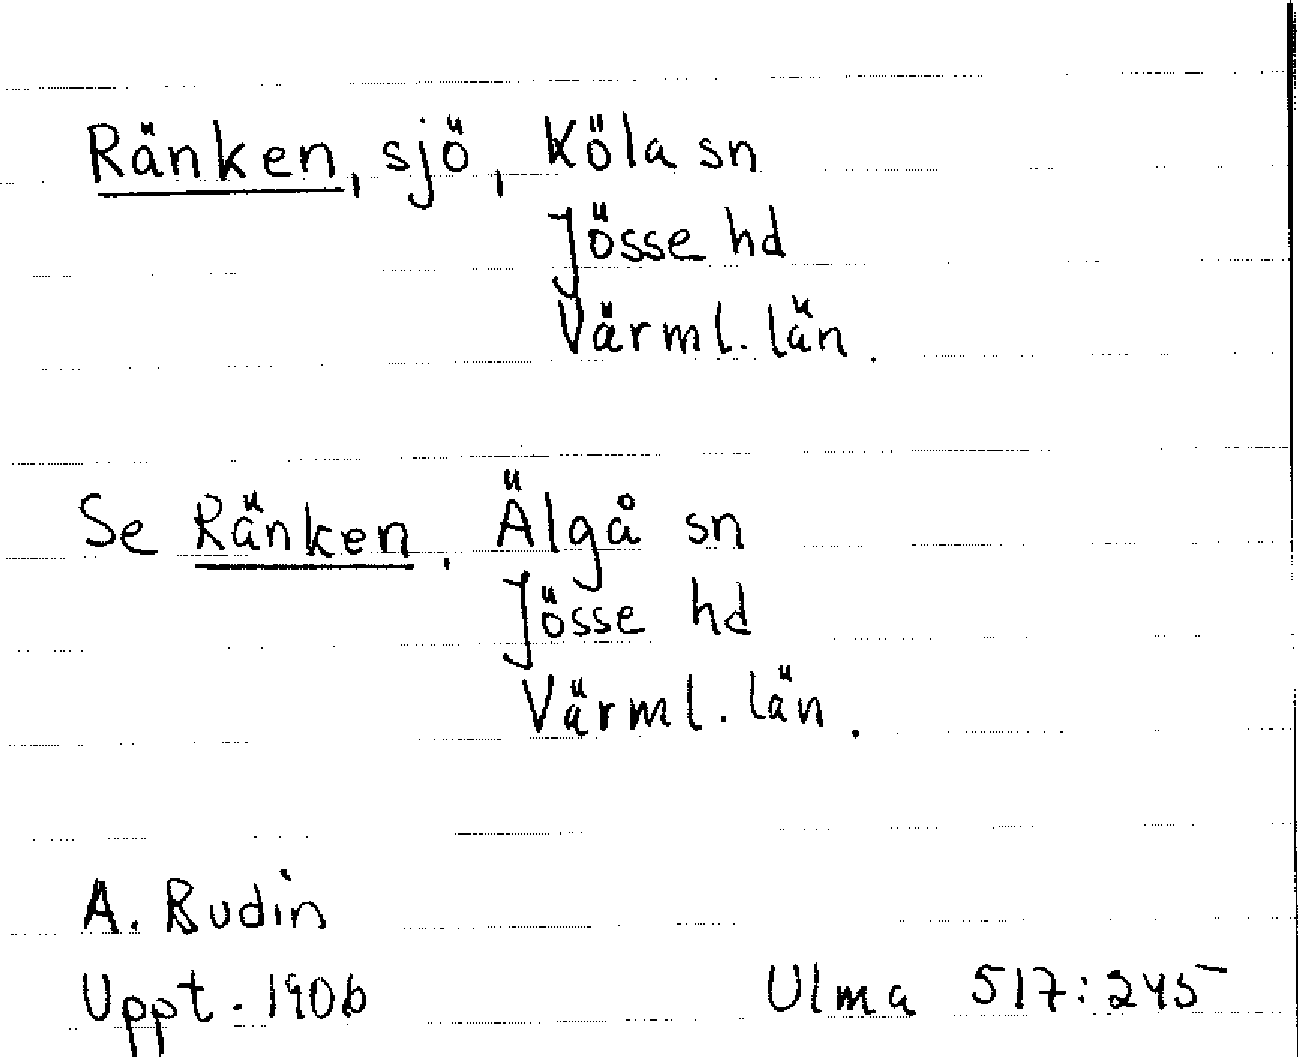 Ränken, sjö, Köla sn
Jösse hd
Värml. län.
Se Ränken, Älgå sn
Jösse hd
Värml. län.
A. Rudin
Uppt. 1906
Ulma 517:245